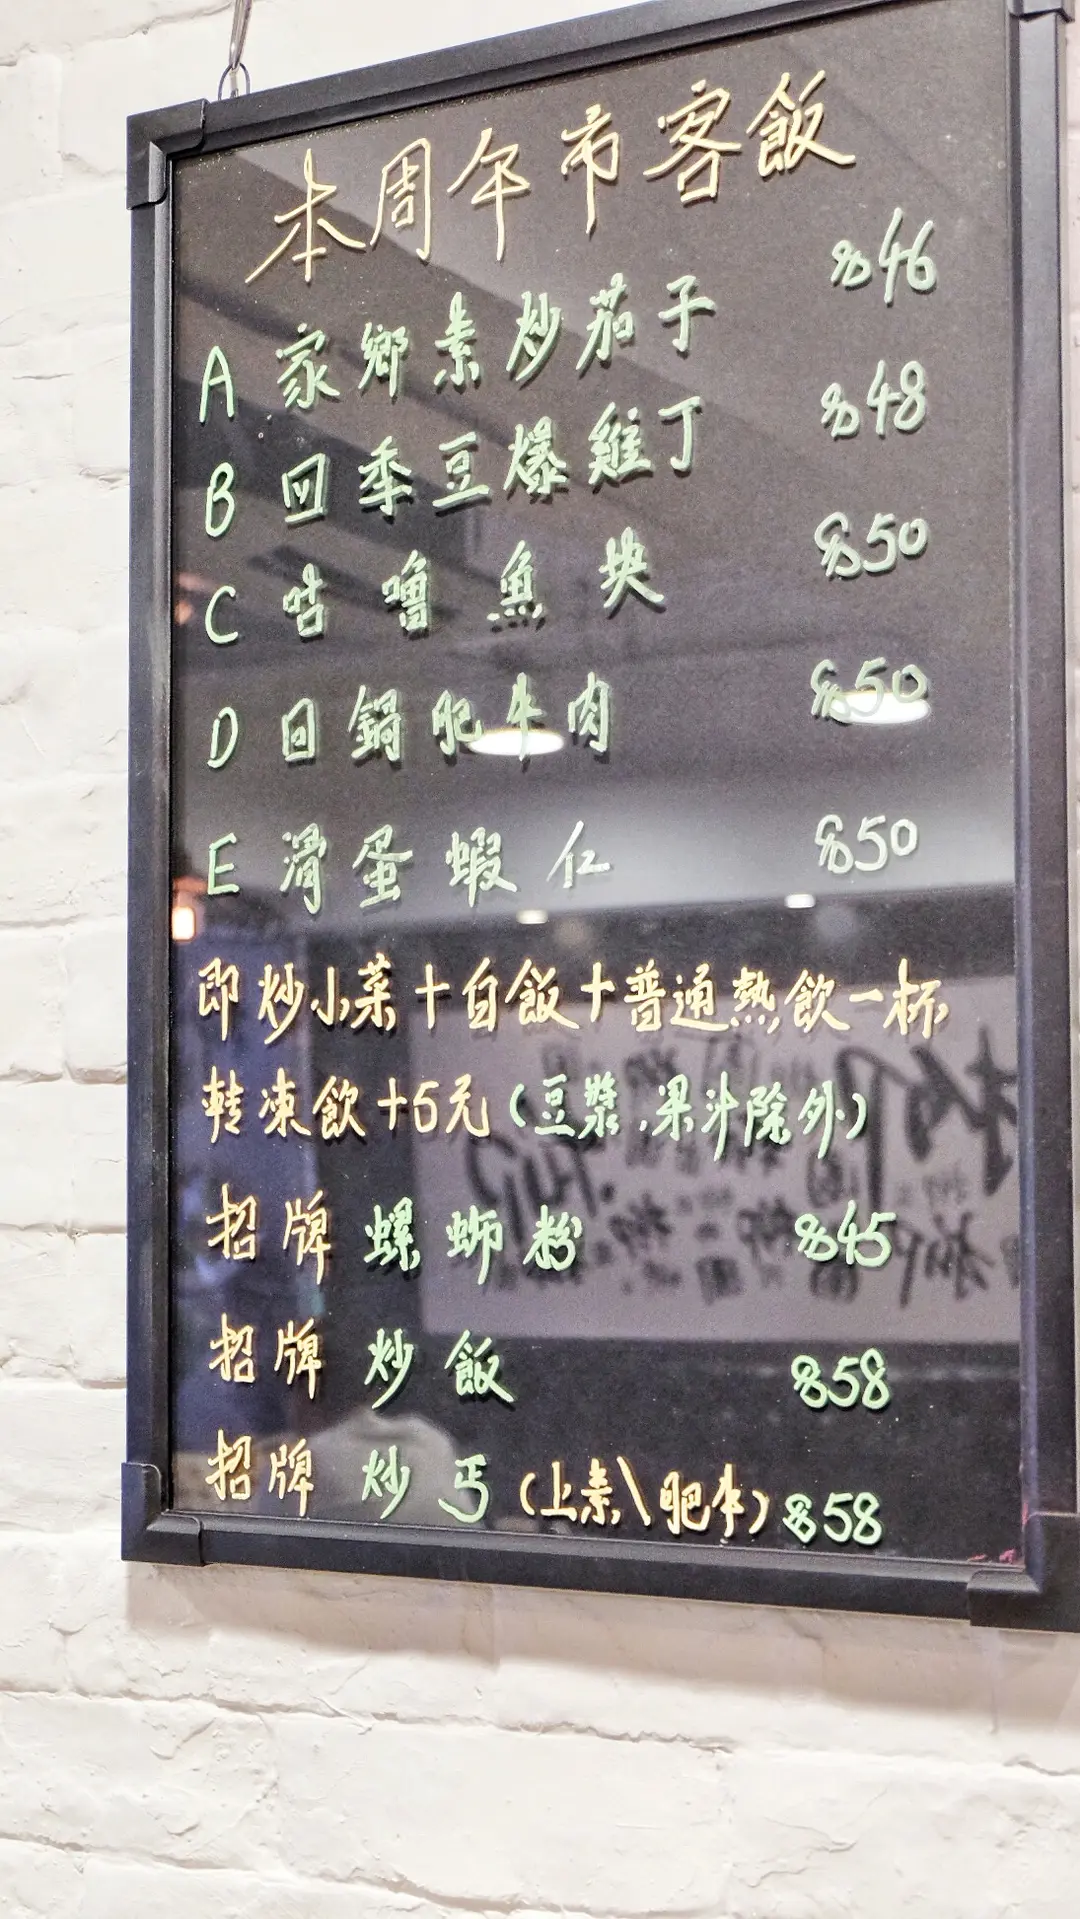 本周午市客飯
A 家鄉素炒茄子 $46
B 四季豆爆雞丁 $48
C 咕嚕魚块 $50
D 回鍋肥牛肉 $50
E 滑蛋蝦仁 $50
即炒小菜+白飯+普通熱飲一杯
轉凍飲+5元(豆漿,果汁除外)
招牌 螺螄粉 $45
招牌 炒飯 $58
招牌 炒丐(上素\肥牛) $58